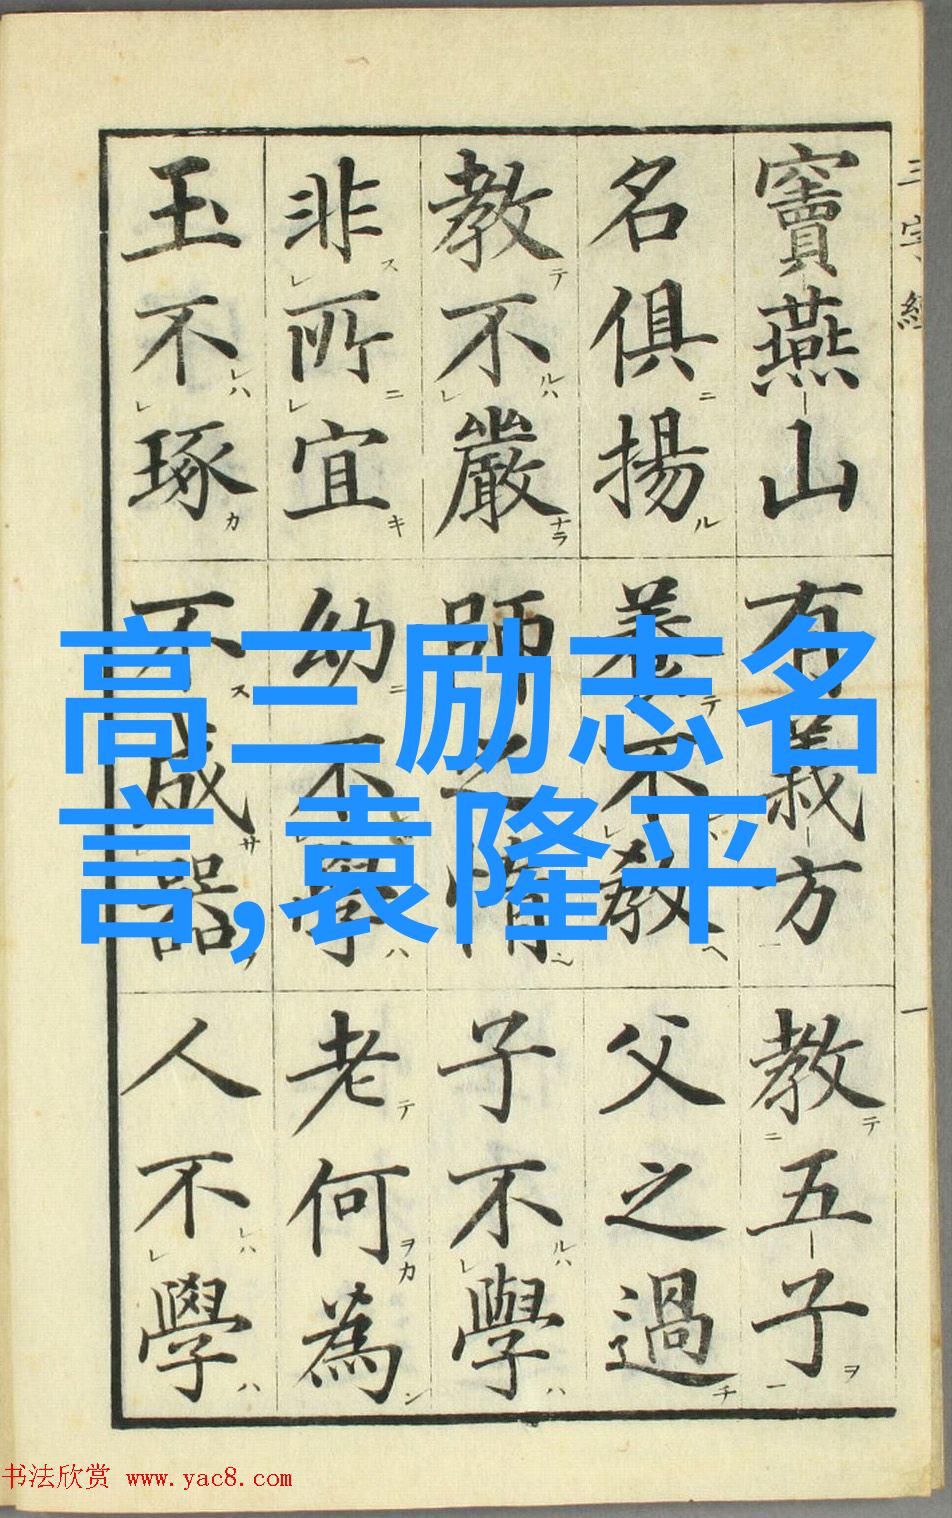 三字經
竇燕山有義方教五子
名俱揚養不教父之過
教不嚴師之惰子不學
非所宜幼不學老何為
玉不琢不成器人不學
高三励志名
言,袁隆平
书法欣赏 www.yac8.com